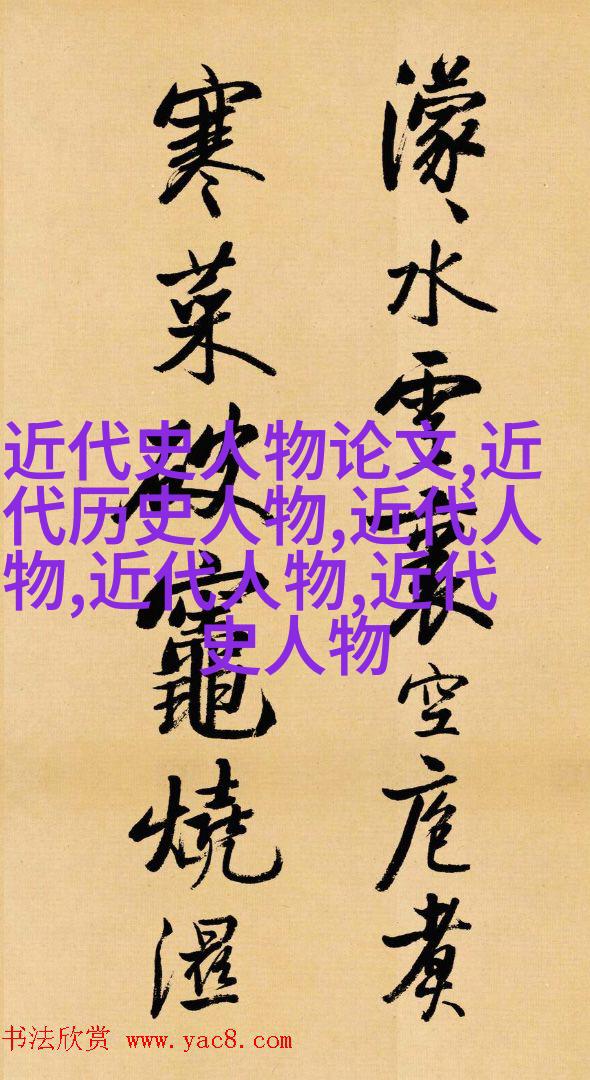 濛〻水雲裏空庖煮
寒菜破竈燒濕
近代史人物论文,近
代历史人物,近代人
物,近代人物,近代
史人物
书法欣赏 www.yac8.com